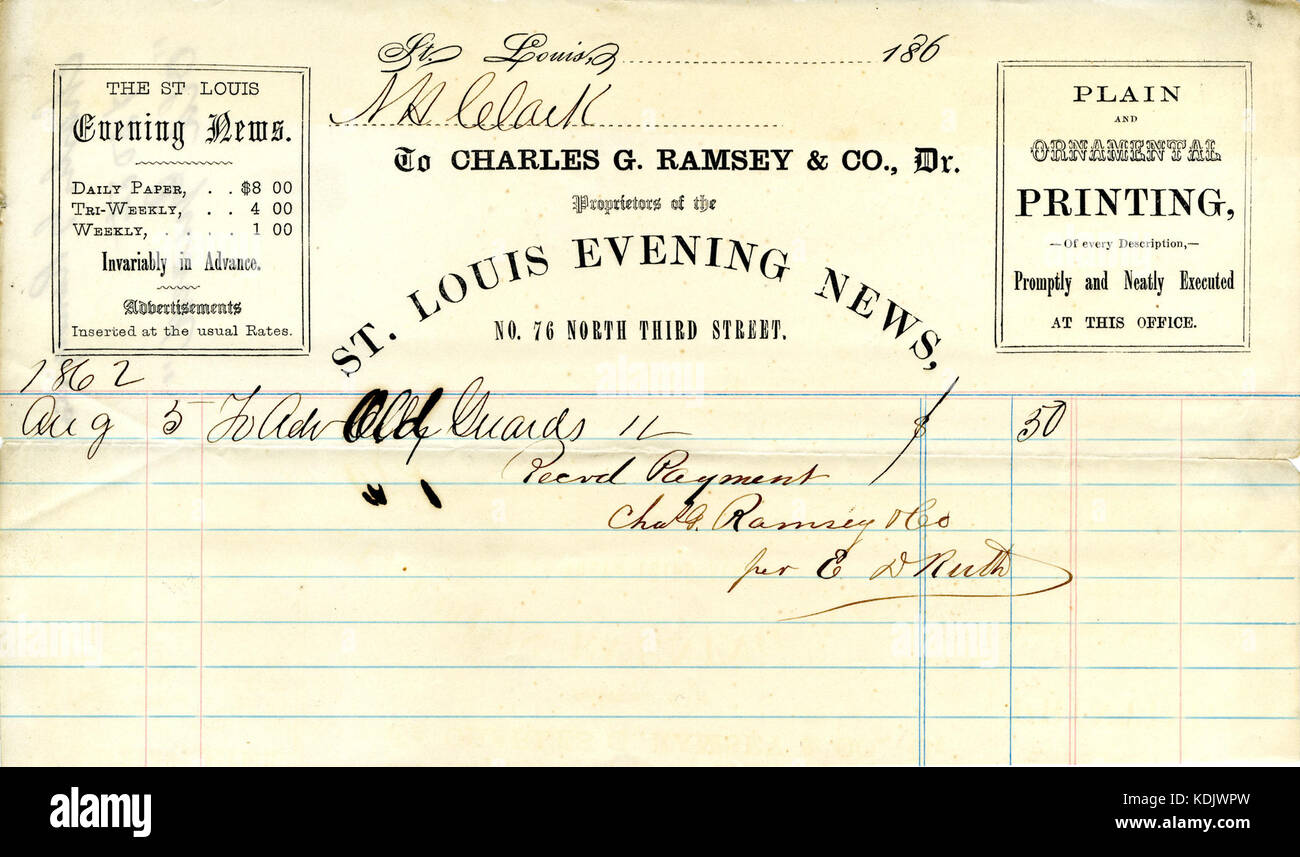 St. Louis, 186
N H Clark
To CHARLES G. RAMSEY & CO., Dr.
Proprietors of the
ST. LOUIS EVENING NEWS,
NO. 76 NORTH THIRD STREET.
THE ST LOUIS
Evening News.
DAILY PAPER, . . $8 00
TRI-WEEKLY, . . 4 00
WEEKLY, . . . . . 1 00
Invariably in Advance.
Advertisements
Inserted at the usual Rates.
PLAIN
AND
ORNAMENTAL
PRINTING,
—Of every Description,—
Promptly and Neatly Executed
AT THIS OFFICE.
1862
Aug 5 To Adv Old Guards $ 50
Recvd Payment
Chas G. Ramsey & Co
per E D Ruth
alamy
Image ID: KDJWPW
www.alamy.com